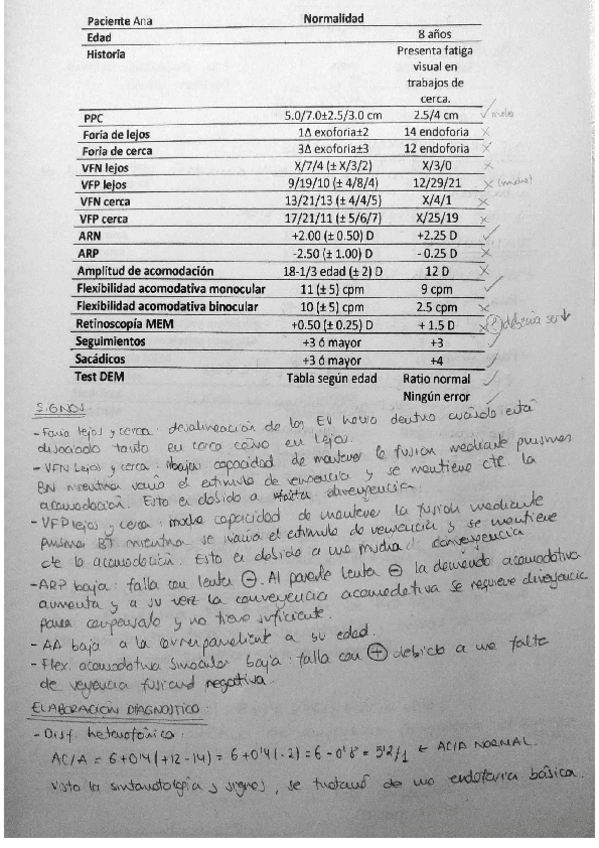 Paciente Ana Normalidad
Edad 8 años
Historia Presenta fatiga
visual en
trabajos de
cerca.
PPC 5.0/7.0±2.5/3.0 cm 2.5/4 cm ✓
Foria de lejos 1Δ exoforia±2 14 endoforia ×
Foria de cerca 3Δ exoforia±3 12 endoforia ×
VFN lejos X/7/4 (± X/3/2) X/3/0 ×
VFP lejos 9/19/10 (± 4/8/4) 12/29/21 × (mucho)
VFN cerca 13/21/13 (± 4/4/5) X/4/1 ×
VFP cerca 17/21/11 (± 5/6/7) X/25/19 ×
ARN +2.00 (± 0.50) D +2.25 D ✓
ARP -2.50 (± 1.00) D - 0.25 D ×
Amplitud de acomodación 18-1/3 edad (± 2) D 12 D ×
Flexibilidad acomodativa monocular 11 (± 5) cpm 9 cpm ✓
Flexibilidad acomodativa binocular 10 (± 5) cpm 2.5 cpm ×
Retinoscopía MEM +0.50 (± 0.25) D + 1.5 D × (?) debería ser ↓
Seguimientos +3 ó mayor +3 ✓
Sacádicos +3 ó mayor +4 ✓
Test DEM Tabla según edad Ratio normal ✓
Ningún error ✓
SIGNOS:
- Foria lejos y cerca: desalineación de los EV hacia dentro cuando está
disociado tanto en cerca como en lejos.
- VFN lejos y cerca: baja capacidad de mantener la fusión mediante prismas
BN mientras varía el estímulo de vergencia y se mantiene cte la
acomodación. Esto es debido a divergencia.
- VFP lejos y cerca: mucha capacidad de mantener la fusión mediante
prismas BT mientras se varía el estímulo de vergencia y se mantiene
cte la acomodación. Esto es debido a una mucha convergencia
- ARP baja: falla con lentes ⊖. Al ponerle lentes ⊖ la demanda acomodativa
aumenta y a su vez la convergencia acomodativa se requiere divergencia
para compensarlo y no tiene suficiente.
- AA baja a la correspondiente a su edad.
- Flex. acomodativa binocular baja: falla con ⊕ debido a una falta
de vergencia fusional negativa.
ELABORACIÓN DIAGNOSTICO:
- Disf. heterofórica:
AC/A = 6+0'4(+12-14) = 6+0'4(-2) = 6-0'8 = 5'2/1 ← AC/A NORMAL.
Visto la sintomatología y signos, se trataría de una endoforia básica.